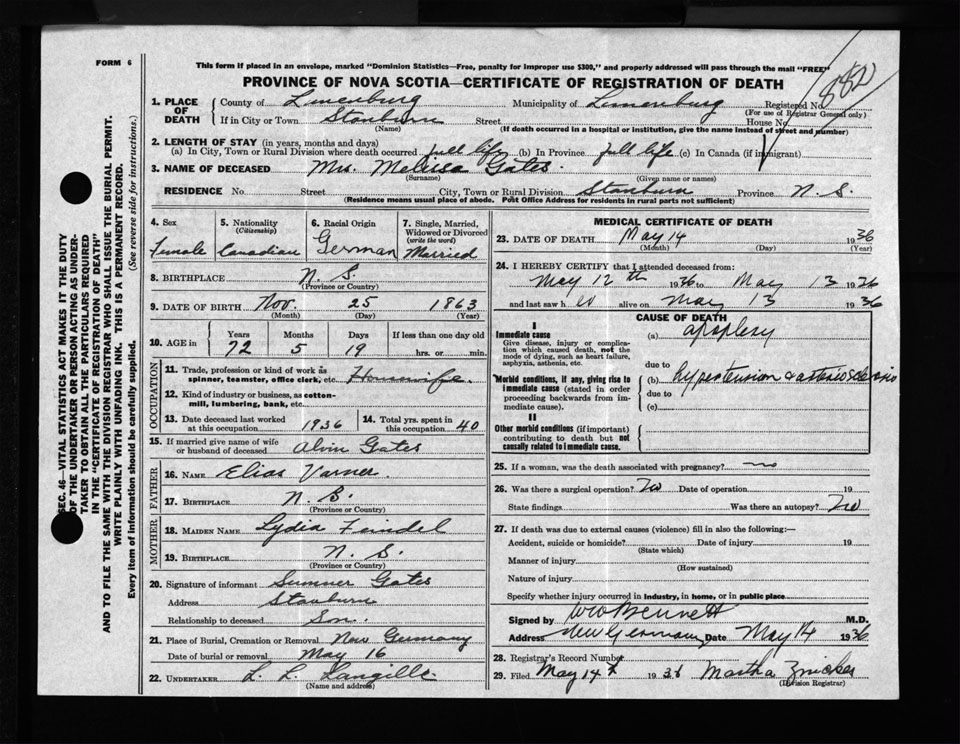 FORM 6
This form if placed in an envelope, marked "Dominion Statistics—Free, penalty for improper use $300," and properly addressed will pass through the mail "FREE"
PROVINCE OF NOVA SCOTIA—CERTIFICATE OF REGISTRATION OF DEATH
882
1. PLACE OF DEATH County of Lunenburg Municipality of Lunenburg Registered No.
(For use of Registrar General only)
If in City or Town Stanburn Street House No.
(Name) (If death occurred in a hospital or institution, give the name instead of street and number)
2. LENGTH OF STAY (in years, months and days)
(a) In City, Town or Rural Division where death occurred full life (b) In Province full life (c) In Canada (if immigrant)
3. NAME OF DECEASED Mrs. Melissa Gates
(Surname) (Given name or names)
RESIDENCE No. Street City, Town or Rural Division Stanburn Province N. S.
(Residence means usual place of abode. Post Office Address for residents in rural parts not sufficient)
SEC. 46—VITAL STATISTICS ACT MAKES IT THE DUTY
OF THE UNDERTAKER OR PERSON ACTING AS UNDER-
TAKER TO OBTAIN ALL THE PARTICULARS REQUIRED
IN THE "CERTIFICATE OF REGISTRATION OF DEATH"
AND TO FILE THE SAME WITH THE DIVISION REGISTRAR WHO SHALL ISSUE THE BURIAL PERMIT.
WRITE PLAINLY WITH UNFADING INK. THIS IS A PERMANENT RECORD.
Every item of information should be carefully supplied. (See reverse side for instructions.)
4. Sex 5. Nationality (Citizenship) 6. Racial Origin 7. Single, Married, Widowed or Divorced (write the word)
Female Canadian German Married
8. BIRTHPLACE N. S.
(Province or Country)
9. DATE OF BIRTH Nov. 25 1863
(Month) (Day) (Year)
10. AGE in Years Months Days If less than one day old
72 5 19 hrs. or min.
OCCUPATION
11. Trade, profession or kind of work as
spinner, teamster, office clerk, etc. Housewife
12. Kind of industry or business, as cotton-
mill, lumbering, bank, etc.
13. Date deceased last worked at this occupation 1936 14. Total yrs. spent in this occupation 40
15. If married give name of wife or husband of deceased Alvin Gates
FATHER
16. NAME Elias Varner
17. BIRTHPLACE N. S.
(Province or Country)
MOTHER
18. MAIDEN NAME Lydia Feindel
19. BIRTHPLACE N. S.
(Province or Country)
20. Signature of informant Sumner Gates
Address Stanburn
Relationship to deceased Son.
21. Place of Burial, Cremation or Removal New Germany
Date of burial or removal May 16
22. UNDERTAKER L. L. Langille
(Name and address)
MEDICAL CERTIFICATE OF DEATH
23. DATE OF DEATH May 14 1936
(Month) (Day) (Year)
24. I HEREBY CERTIFY that I attended deceased from:
May 12th 1936 to May 13 1936
and last saw h er alive on May 13 1936
CAUSE OF DEATH
I
Immediate cause (a) apoplexy
Give disease, injury or complica-
tion which caused death, not the
mode of dying, such as heart failure,
asphyxia, asthenia, etc.
due to
Morbid conditions, if any, giving rise to
immediate cause (stated in order
proceeding backwards from im-
mediate cause).
(b) hypertension & arteriosclerosis
due to
(c)
II
Other morbid conditions (if important)
contributing to death but not
causally related to immediate cause.
25. If a woman, was the death associated with pregnancy? no
26. Was there a surgical operation? No Date of operation 19
State findings Was there an autopsy? No
27. If death was due to external causes (violence) fill in also the following:—
Accident, suicide or homicide? Date of injury 19
(State which)
Manner of injury
(How sustained)
Nature of injury
Specify whether injury occurred in industry, in home, or in public place
Signed by W W Bennett M.D.
Address New Germany Date May 14 1936
28. Registrar's Record Number
29. Filed May 14th 1936 Martha Zwicker
(Division Registrar)